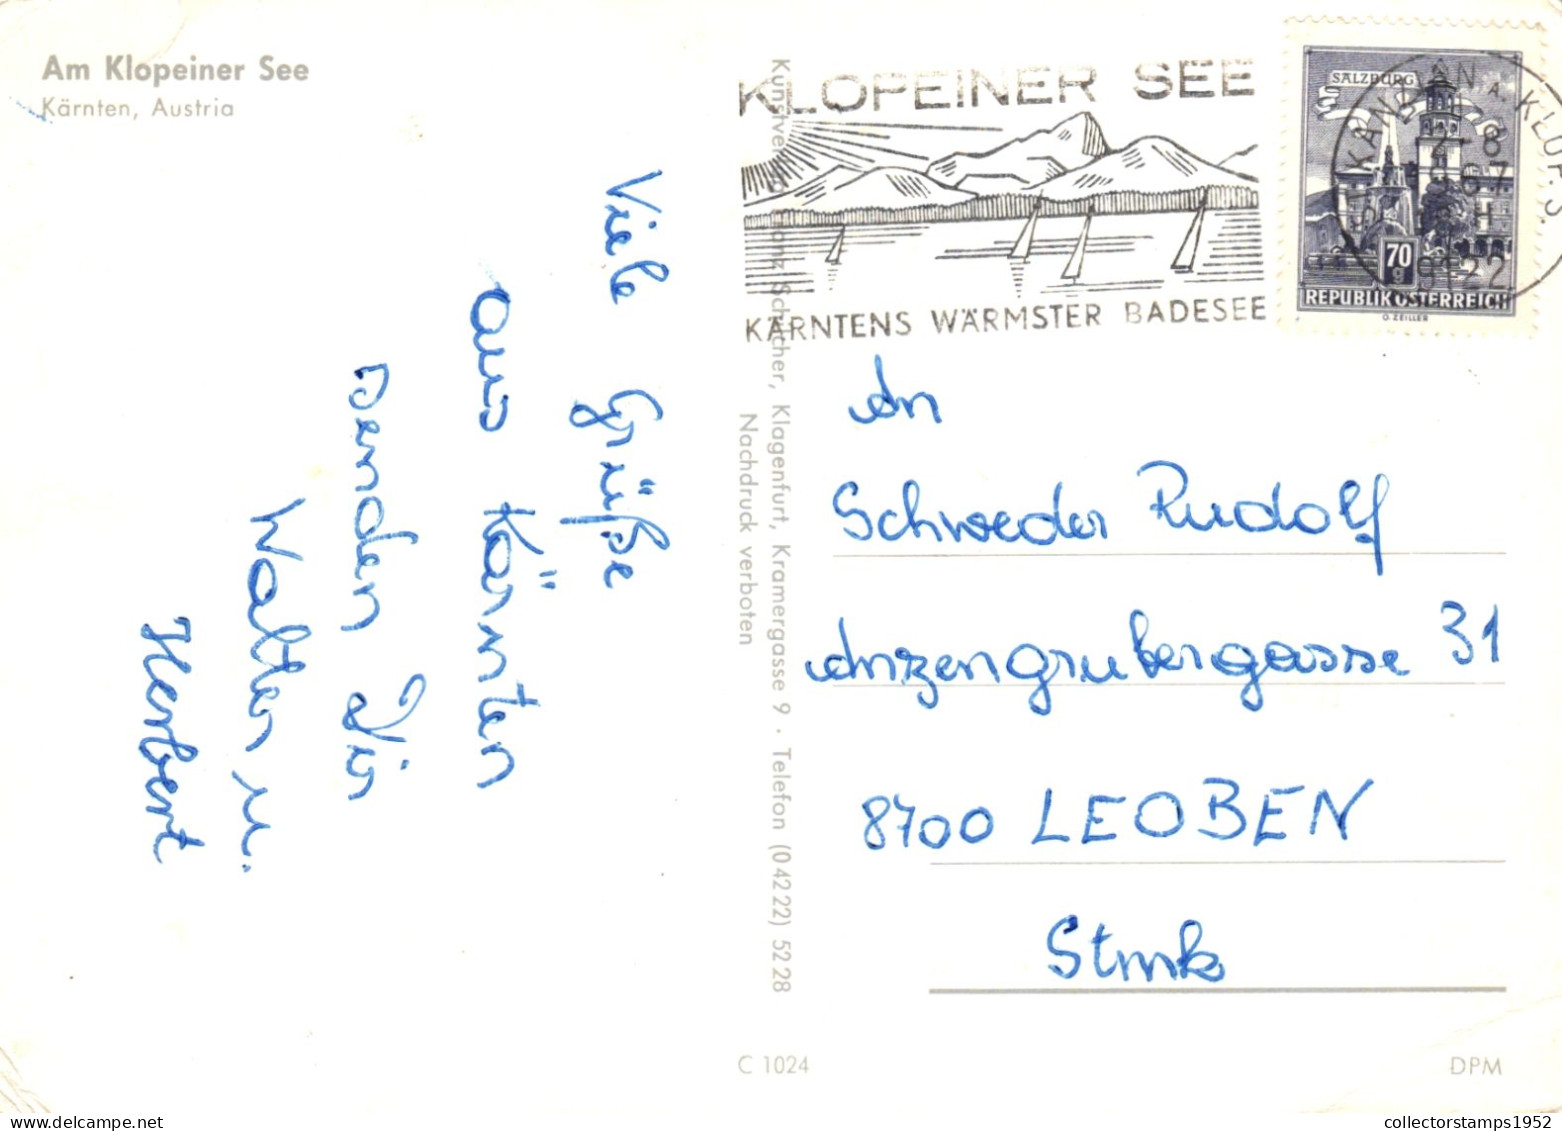 Am Klopeiner See
Kärnten, Austria
Viele Grüße
aus Kärnten
senden Dir
Walter u.
Herbert
Kunstverlag Franz Schilcher, Klagenfurt, Kramergasse 9 · Telefon (042 22) 52 28
Nachdruck verboten
KLOPEINER SEE
KÄRNTENS WÄRMSTER BADESEE
SALZBURG
70
g
REPUBLIK ÖSTERREICH
O. ZEILLER
KLOP. S.
9122
An
Schweder Rudolf
Anzengrubergasse 31
8700 LEOBEN
Stmk
C 1024
DPM
collectorstamps1952